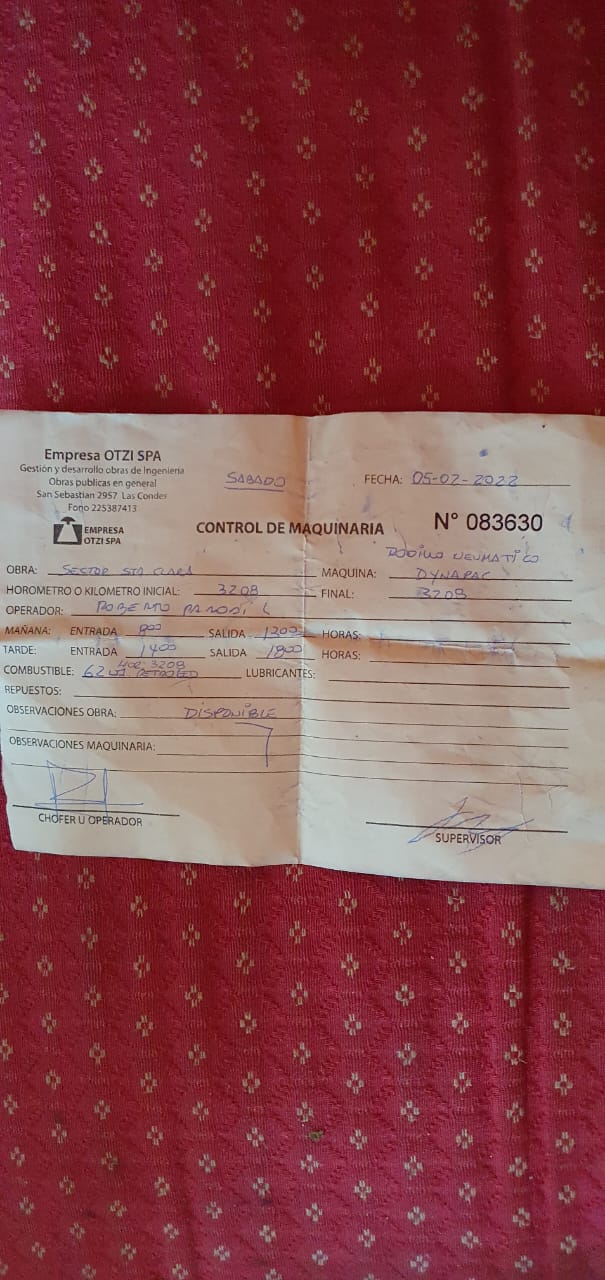 Empresa OTZI SPA
Gestión y desarrollo obras de Ingenieria
Obras publicas en general
San Sebastian 2957 Las Condes
Fono 225387413
EMPRESA
OTZI SPA
SABADO
FECHA: 05-02-2022
CONTROL DE MAQUINARIA
N° 083630
RODILLO NEUMATICO
OBRA: SECTOR STA CLARA MAQUINA: DYNAPAC
HOROMETRO O KILOMETRO INICIAL: 3208 FINAL: 3209
OPERADOR: ROBERTO PARODI L
MAÑANA: ENTRADA 800 SALIDA 1300 HORAS:
TARDE: ENTRADA 1400 SALIDA 1800 HORAS:
HOR: 3209
COMBUSTIBLE: 62 PETROLEO LUBRICANTES:
REPUESTOS:
OBSERVACIONES OBRA: DISPONIBLE
OBSERVACIONES MAQUINARIA:
CHOFER U OPERADOR
SUPERVISOR